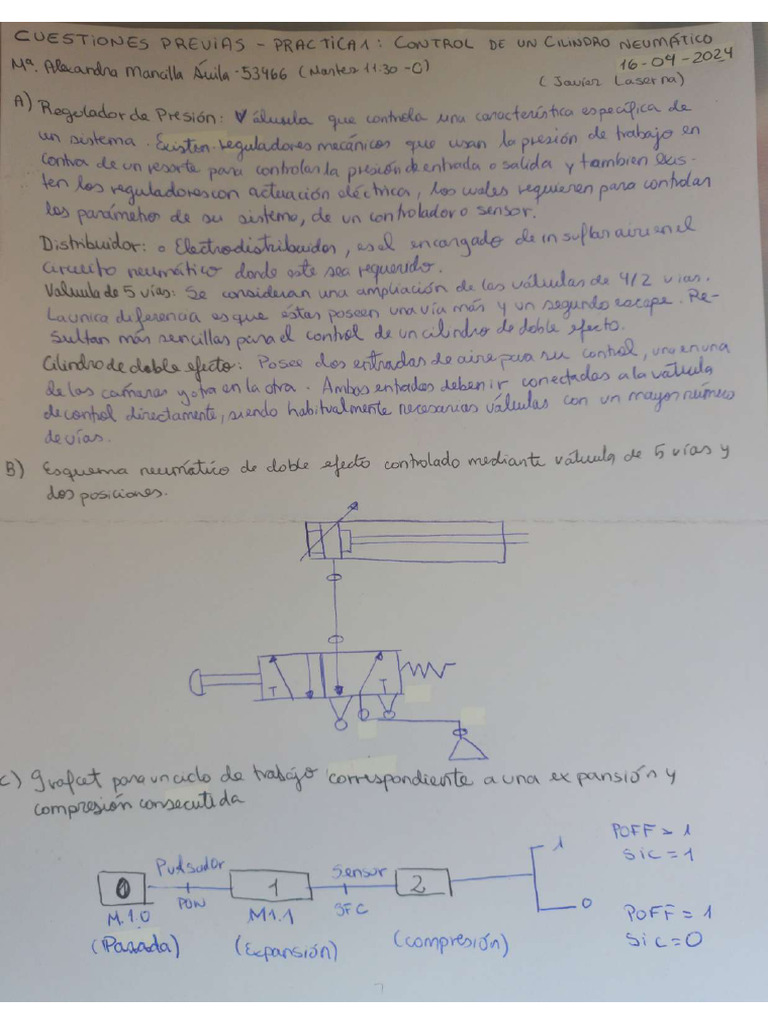 CUESTIONES PREVIAS - PRACTICA 1: CONTROL DE UN CILINDRO NEUMÁTICO
Mª. Alexandra Mancilla Ávila - 53466 (Martes 11:30 - C)
16-04-2024
(Javier Laserna)
A) Regulador de Presión: Válvula que controla una característica específica de
un sistema. Existen reguladores mecánicos que usan la presión de trabajo en
contra de un resorte para controlar la presión de entrada o salida y tambien exis-
ten los reguladores con actuación eléctrica, los cuales requieren para controlar
los parámetros de su sistema, de un controlador o sensor.
Distribuidor: o Electrodistribuidor, es el encargado de insuflar aire en el
circuito neumático donde este sea requerido.
Valvula de 5 vías: Se consideran una ampliación de las válvulas de 4/2 vias.
La unica diferencia es que éstas poseen una vía más y un segundo escape. Re-
sultan más sencillas para el control de un cilindro de doble efecto.
Cilindro de doble efecto: Posee dos entradas de aire para su control, una en una
de las camaras y otra en la otra. Ambas entradas deben ir conectadas a la válvula
de control directamente, siendo habitualmente necesarias válvulas con un mayor número
de vías.
B) Esquema neumático de doble efecto controlado mediante válvula de 5 vías y
dos posiciones.
T T
C) Grafcet para un ciclo de trabajo correspondiente a una expansión y
compresión consecutida
Pulsador Sensor 1 POFF = 1
SiC = 1
0 1 2
PON SFC 0
M.1.0 M1.1 POFF = 1
(Parada) (Expansión) (compresión) SiC = 0